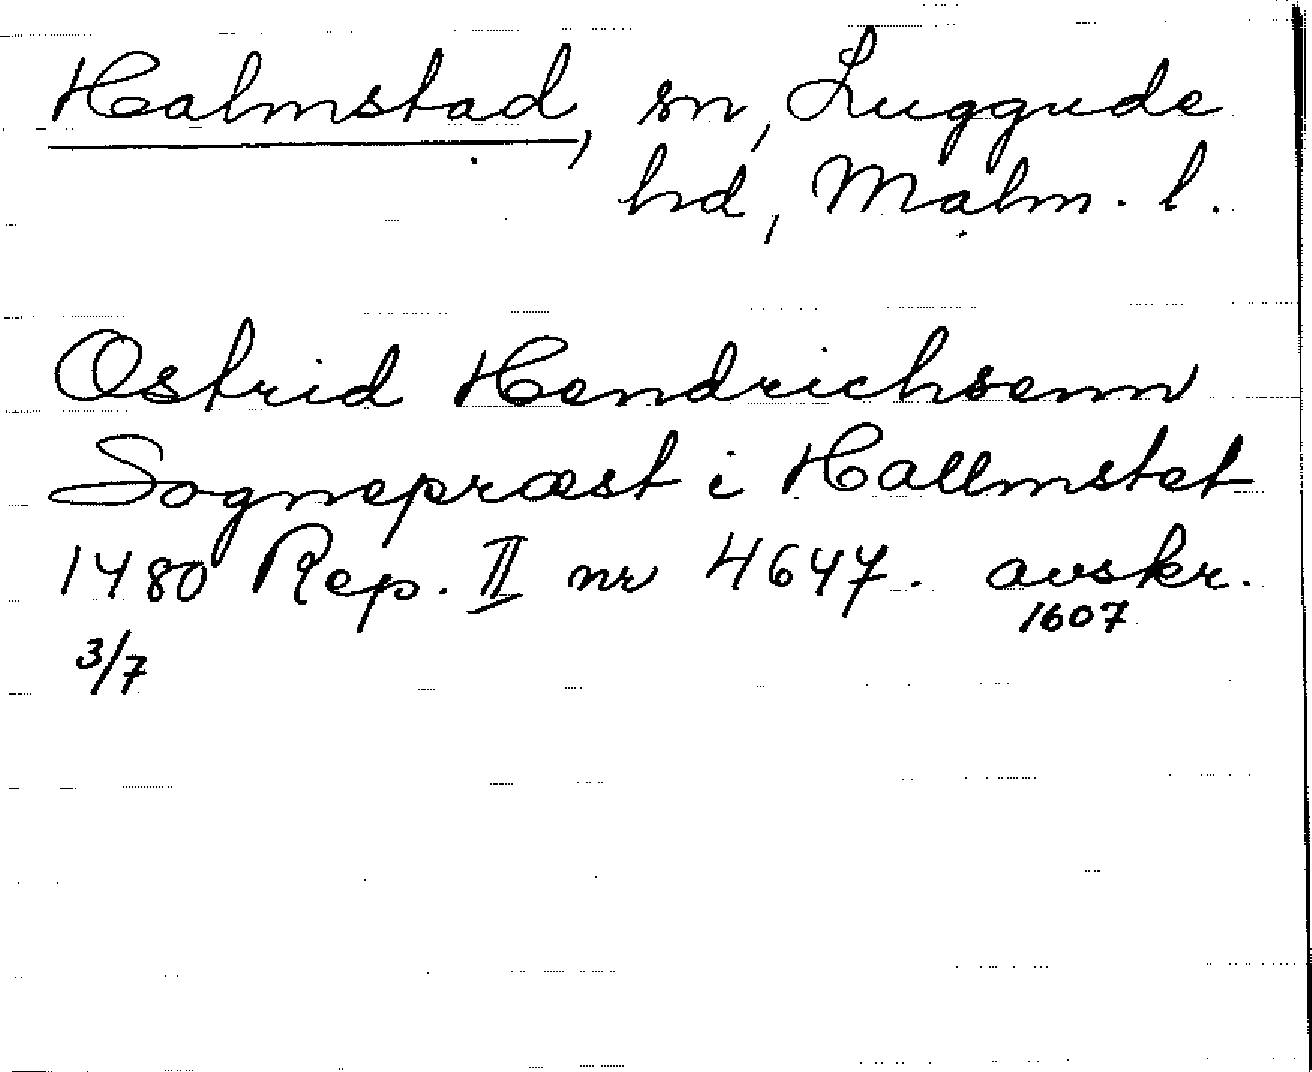 Halmstad, sn, Luggude
hd, Malm. l.
Ostrid Hendrichsenn
Sognepræst i Hallmstet
1480 Rep. II nr 4647. avskr.
1607
3/7